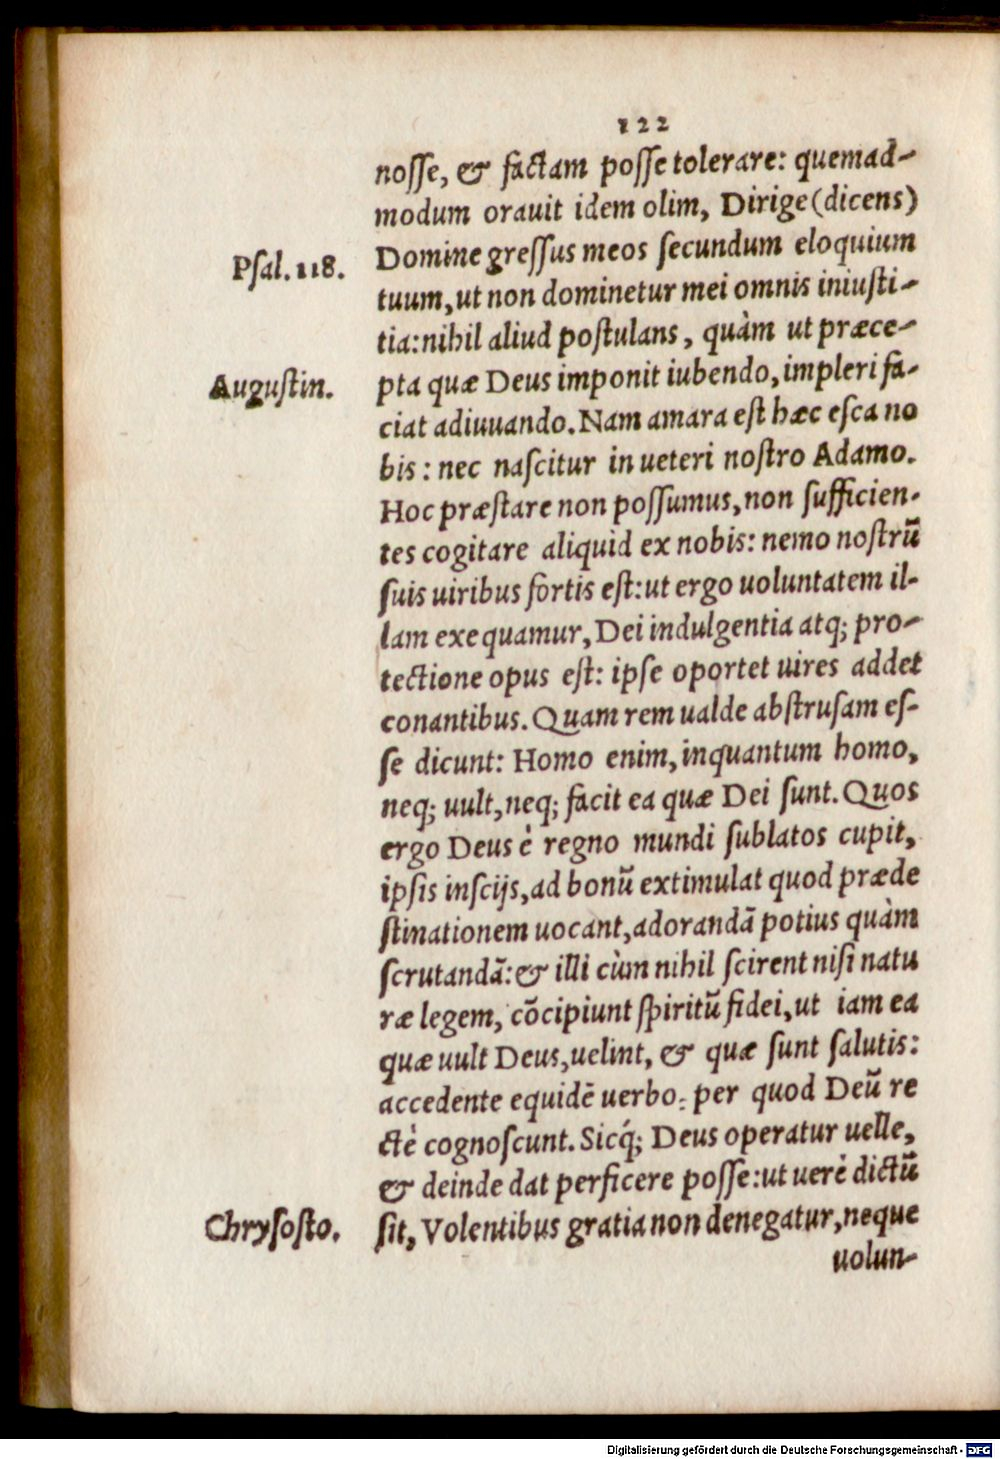 122
noſſe, & factam poſſe tolerare: quemad-
modum orauit idem olim, Dirige (dicens)
Domine greſſus meos ſecundum eloquium
Pſal. 118.
tuum, ut non dominetur mei omnis iniuſti-
tia: nihil aliud poſtulans, quàm ut præce-
Auguſtin.
pta quæ Deus imponit iubendo, impleri fa-
ciat adiuuando. Nam amara eſt hæc eſca no
bis: nec naſcitur in ueteri noſtro Adamo.
Hoc præſtare non poſſumus, non ſufficien-
tes cogitare aliquid ex nobis: nemo noſtrũ
ſuis uiribus fortis eſt: ut ergo uoluntatem il-
lam exequamur, Dei indulgentia atq; pro-
tectione opus eſt: ipſe oportet uires addet
conantibus. Quam rem ualde abſtruſam eſ-
ſe dicunt: Homo enim, inquantum homo,
neq; uult, neq; facit ea quæ Dei ſunt. Quos
ergo Deus è regno mundi ſublatos cupit,
ipſis inſcijs, ad bonũ extimulat quod præde
ſtinationem uocant, adorandã potius quàm
ſcrutandã: & illi cùm nihil ſcirent niſi natu
ræ legem, cõcipiunt ſpiritũ fidei, ut iam ea
quæ uult Deus, uelint, & quæ ſunt ſalutis:
accedente equidẽ uerbo: per quod Deũ re
ctè cognoſcunt. Sicq́; Deus operatur uelle,
& deinde dat perficere poſſe: ut uerè dictũ
Chryſoſto.
ſit, Volentibus gratia non denegatur, neque
uolun-
Digitalisierung gefördert durch die Deutsche Forschungsgemeinschaft - DFG